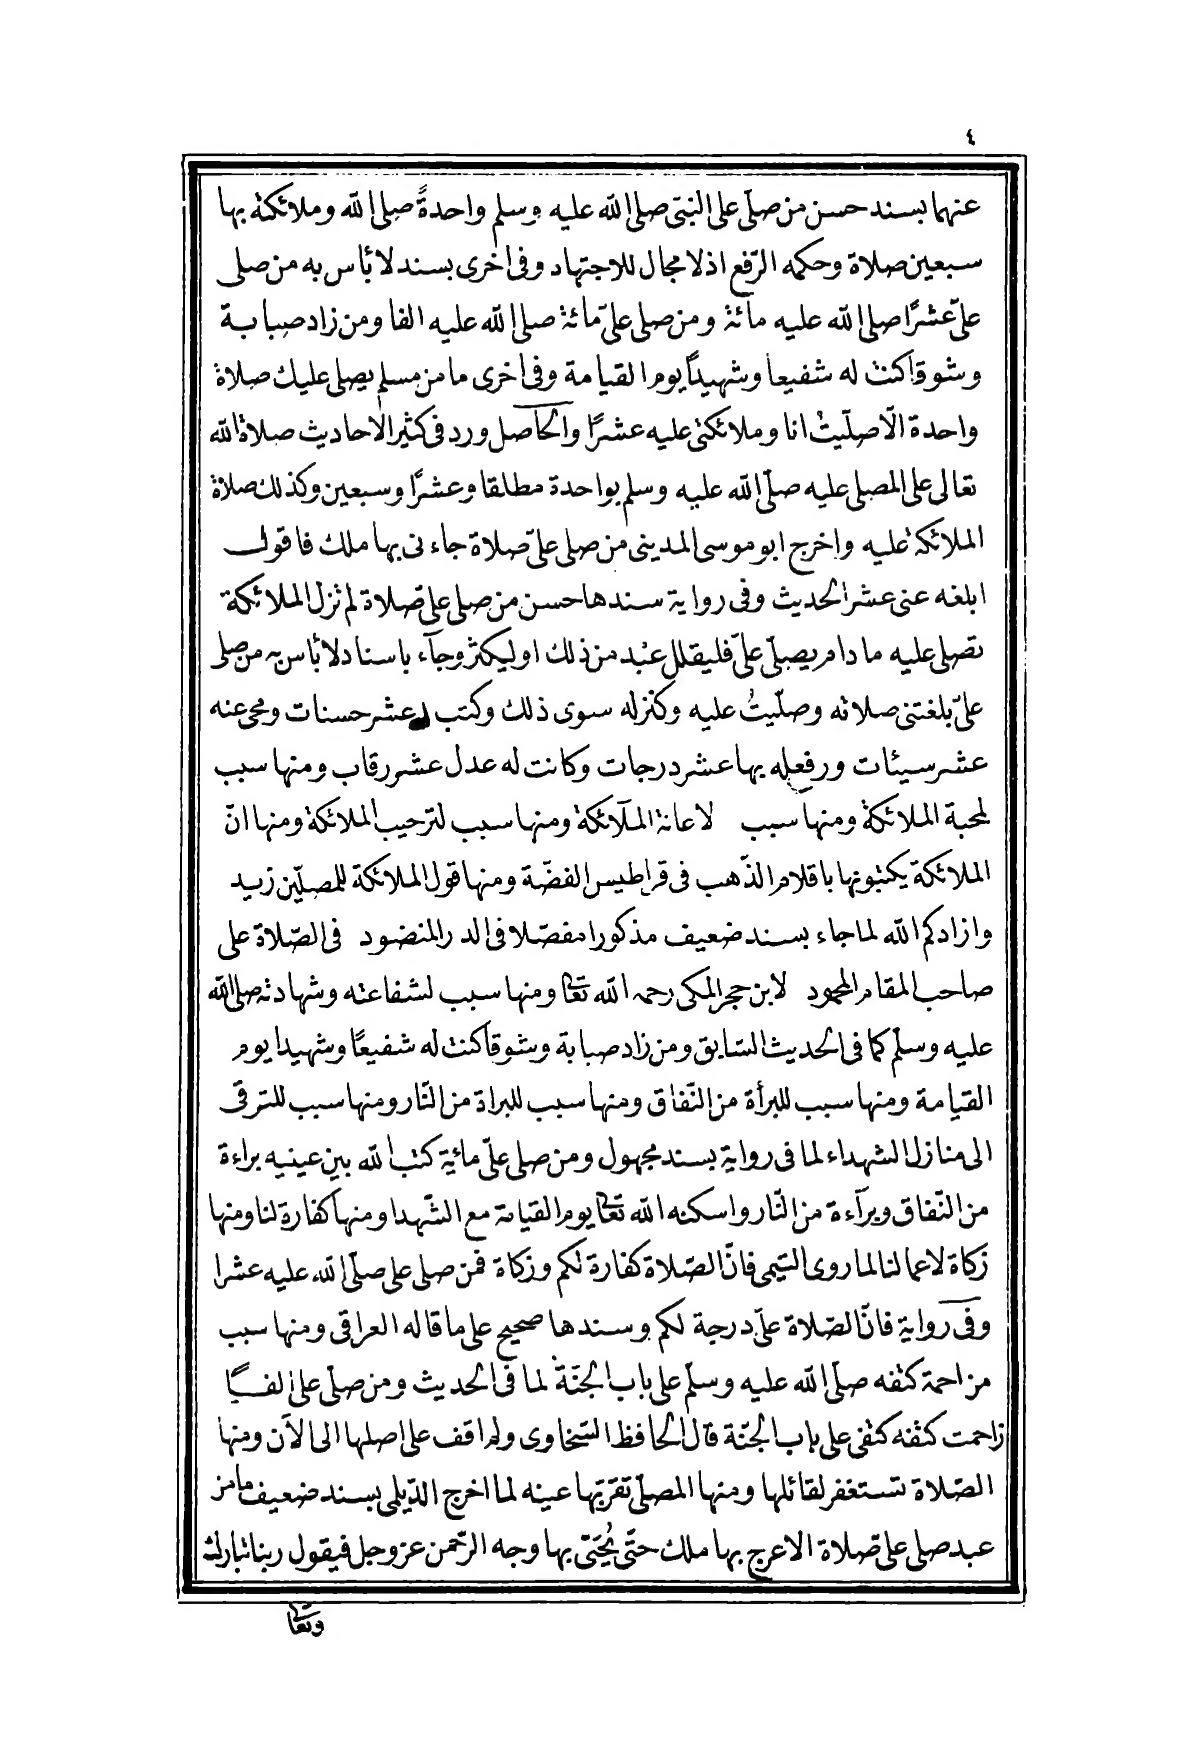 ٤
عنهما بسند حسن من صلّى على النبىّ صلى الله عليه وسلم واحدةً صلى الله وملائكته بها
سبعين صلاة وحكمه الرّفع اذ لا مجال للاجتهاد وفى اخرى بسند لا بأس به من صلى
علىّ عشرًا صلى الله عليه مائة ومن صلى علىّ مائة صلى الله عليه الفا ومن زاد صبابة
وشوقا كنت له شفيعا وشهيدًا يوم القيامة وفى اخرى ما من مسلم يصلى عليك صلاة
واحدة الّا صلّيتُ انا وملائكتى عليه عشرًا والحاصل ورد فى كثير الاحاديث صلاة الله
تعالى على المصلى عليه صلّى الله عليه وسلم بواحدة مطلقا وعشرًا وسبعين وكذلك صلاة
الملائكة عليه واخرج ابو موسى المدينى من صلى علىّ صلاة جاءنى بها ملك فاقول
ابلغه عنى عشر الحديث وفى رواية سندها حسن من صلى علىّ صلاة لم تزل الملائكة
تصلى عليه ما دام يصلّى علىّ فليقلل عبد من ذلك او ليكثر وجآء باسناد لا بأس به من صلى
علىّ بلغتنى صلاته وصلّيتُ عليه وكتب له سوى ذلك وكتب له عشر حسنات ومحى عنه
عشر سيئات ورفع له بها عشر درجات وكانت له عدل عشر رقاب ومنها سبب
لمحبة الملائكة ومنها سبب لاعانة الملآئكة ومنها سبب لترحيب الملائكة ومنها انّ
الملائكة يكتبونها باقلام الذّهب فى قراطيس الفضّة ومنها قول الملائكة للمصلّين زيد
وازادكم الله لما جاء بسند ضعيف مذكورا مفصّلا فى الدر المنضود فى الصّلاة على
صاحب المقام المحمود لابن حجر المكى رحمه الله تعا ومنها سبب لشفاعته وشهادته صلى الله
عليه وسلّم كما فى الحديث السّابق ومن زاد صبابة وشوقا كنت له شفيعًا وشهيدا يوم
القيامة ومنها سبب للبرأة من النّفاق ومنها سبب للبراة من النّار ومنها سبب للترقى
الى منازل الشهداء لما فى رواية بسند مجهول ومن صلى علىّ مائية كتب الله بين عينيه براءة
من النّفاق وبرآءة من النّار واسكنه الله تعا يوم القيامة مع الشّهدا ومنها كفارة لنا ومنها
زكاة لاعمالنا لما روى التيمى فانّ الصّلاة كفارة لكم وزكاة فمن صلى على صلّى الله عليه عشرا
وفى رواية فانّ الصّلاة علىّ درجة لكم وسندها صحيح على ما قاله العراقى ومنها سبب
مزاحمة كتفه صلّى الله عليه وسلّم على باب الجنّة لما فى الحديث ومن صلّى علىّ الفًا
زاحمت كتفه كتفى على باب الجنّة قال الحافظ السّخاوى ولم اقف على اصلها الى الآن ومنها
الصّلاة تستغفر لقائلها ومنها المصلّى تقرّبها عينه لما اخرج الدّيلمى بسند ضعيف ما من
عبد صلى علىّ صلاة الا عرج بها ملك حتّى يُحَيّى بها وجه الرّحمن عز وجل فيقول ربنا تبارك
وتعا